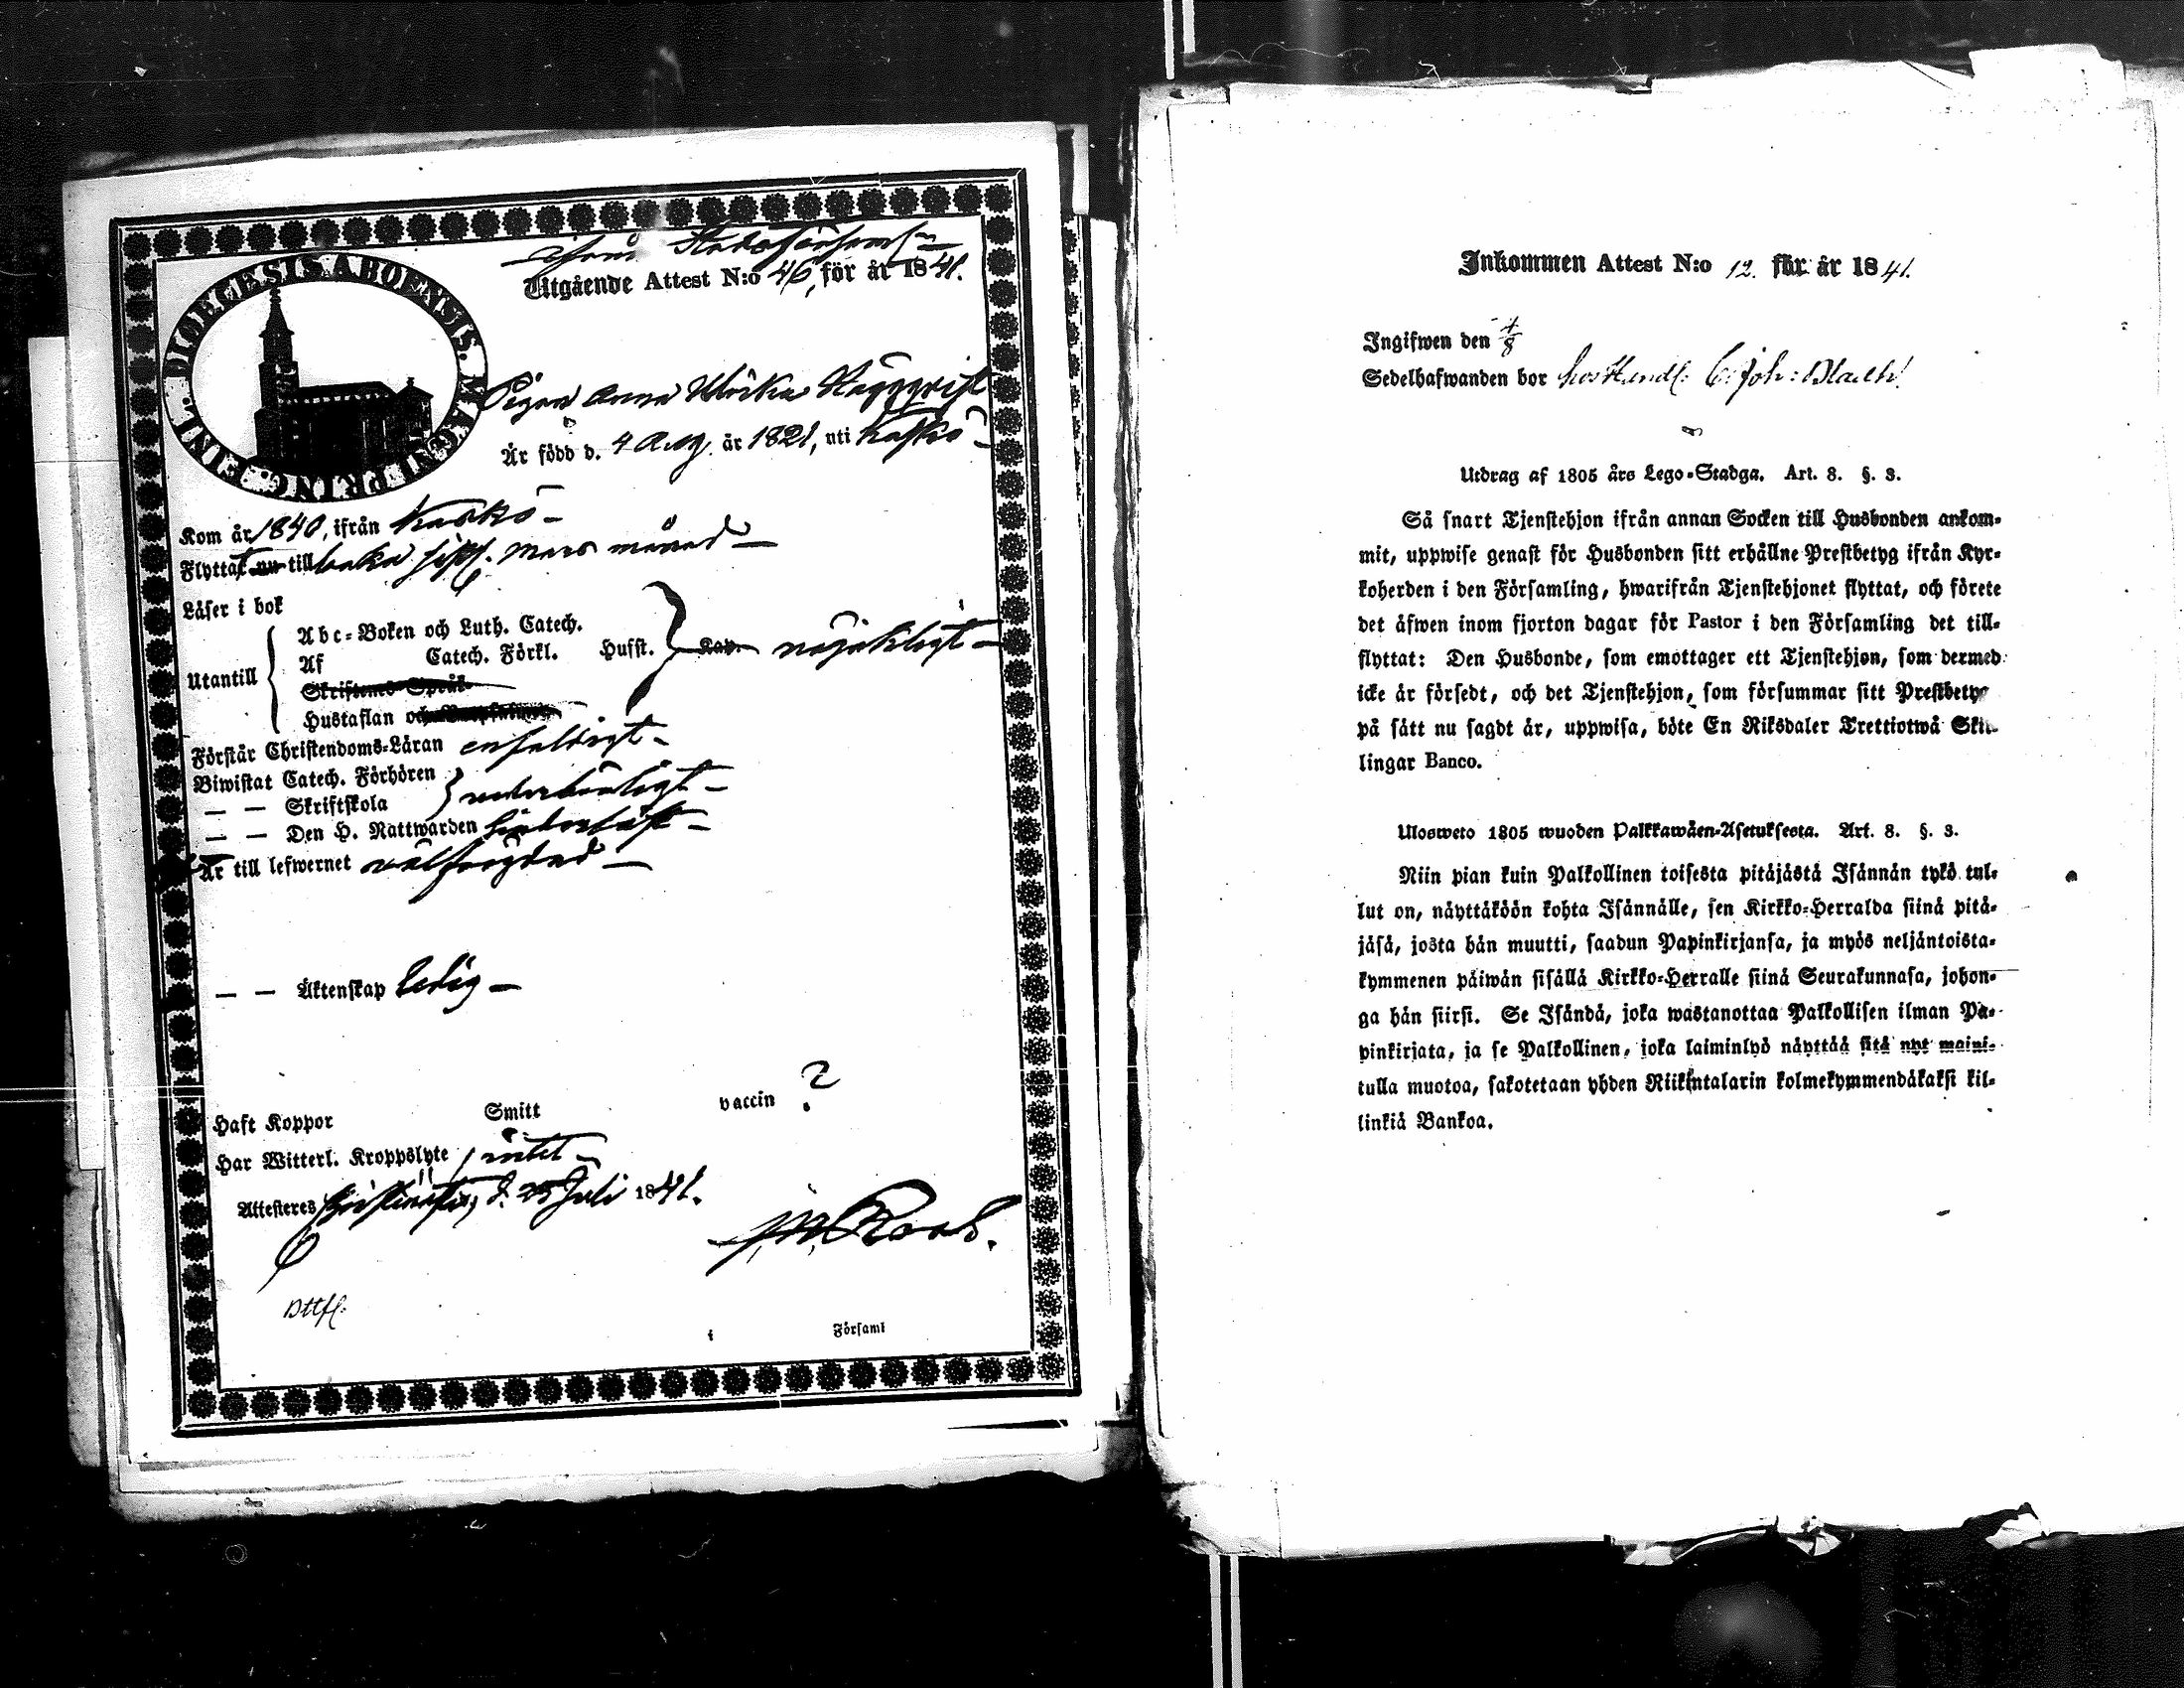 DIOECESIS ABOENSIS. MAGNI PRINC. FENNI.
ifrån Stadsförsaml:
Utgående Attest N:o 46, för år 1841.
Pigan Anna Ulrika Häggqvist
Är född d. 4 Aug. år 1821, uti Kaskö
Kom år 1840, ifrån Kaskö
Flyttat nu tillbaka sistl. Mars månad
Läser i bok
Utantill
Abc-Boken och Luth. Catech.
Af Catech. Förkl. Hufst. Kap. nöjaktligt
Skriftenes Språk
Hustaflan och
Förstår Christendoms-Läran enfaldigt
Biwistat Catech. Förhören
— — Skriftskola
— — Den H. Nattwarden
Är till lefwernet välfrägdad
— — Äktenskap ledig
Haft Koppor Smitt vaccin ?
Har Witterl. Kroppslyte intet
Attesteres Christinestad, d. 25 Juli 1841.
i Församl
Inkommen Attest N:o 12. för år 1841.
Ingifwen den 1/8
Sedelhafwanden bor hos Handl: C: Joh: Bladh
Utdrag af 1805 års Lego-Stadga. Art. 8. §. 3.
Så snart Tjenstehjon ifrån annan Socken till Husbonden ankom-
mit, uppwise genast för Husbonden sitt erhållne Prestbetyg ifrån Kyr-
koherden i den Församling, hwarifrån Tjenstehjonet flyttat, och förete
det äfwen inom fjorton dagar för Pastor i den Församling det till-
flyttat: Den Husbonde, som emottager ett Tjenstehjon, som dermed
icke är försedt, och det Tjenstehjon, som försummar sitt Prestbetyg
på sätt nu sagdt är, uppwisa, böte En Riksdaler Trettiotwå Skil-
lingar Banco.
Ulosweto 1805 wuoden Palkkawäen-Asetuksesta. Art. 8. §. 3.
Niin pian kuin Palkollinen toisesta pitäjästä Isännän tykö tul-
lut on, näyttäköön kohta Isännälle, sen Kirkko-Herralda siinä pitä-
jäsä, josta hän muutti, saadun Papinkirjansa, ja myös neljäntoista-
kymmenen päiwän sisällä Kirkko-Herralle siinä Seurakunnasa, johon-
ga hän siirsi. Se Isändä, joka wastanottaa Palkollisen ilman Pa-
pinkirjata, ja se Palkollinen, joka laiminlyö näyttää sitä nyt maini-
tulla muotoa, sakotetaan yhden Riikintalarin kolmekymmendäkaksi kil-
linkiä Bankoa.